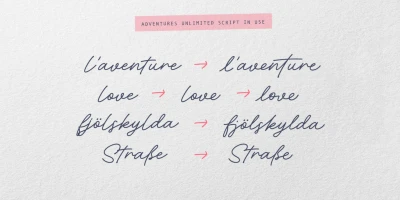 ADVENTURES UNLIMITED SCRIPT IN USE
l'aventure → l'aventure
love → love → love
fjölskylda → fjölskylda
Straße → Straße